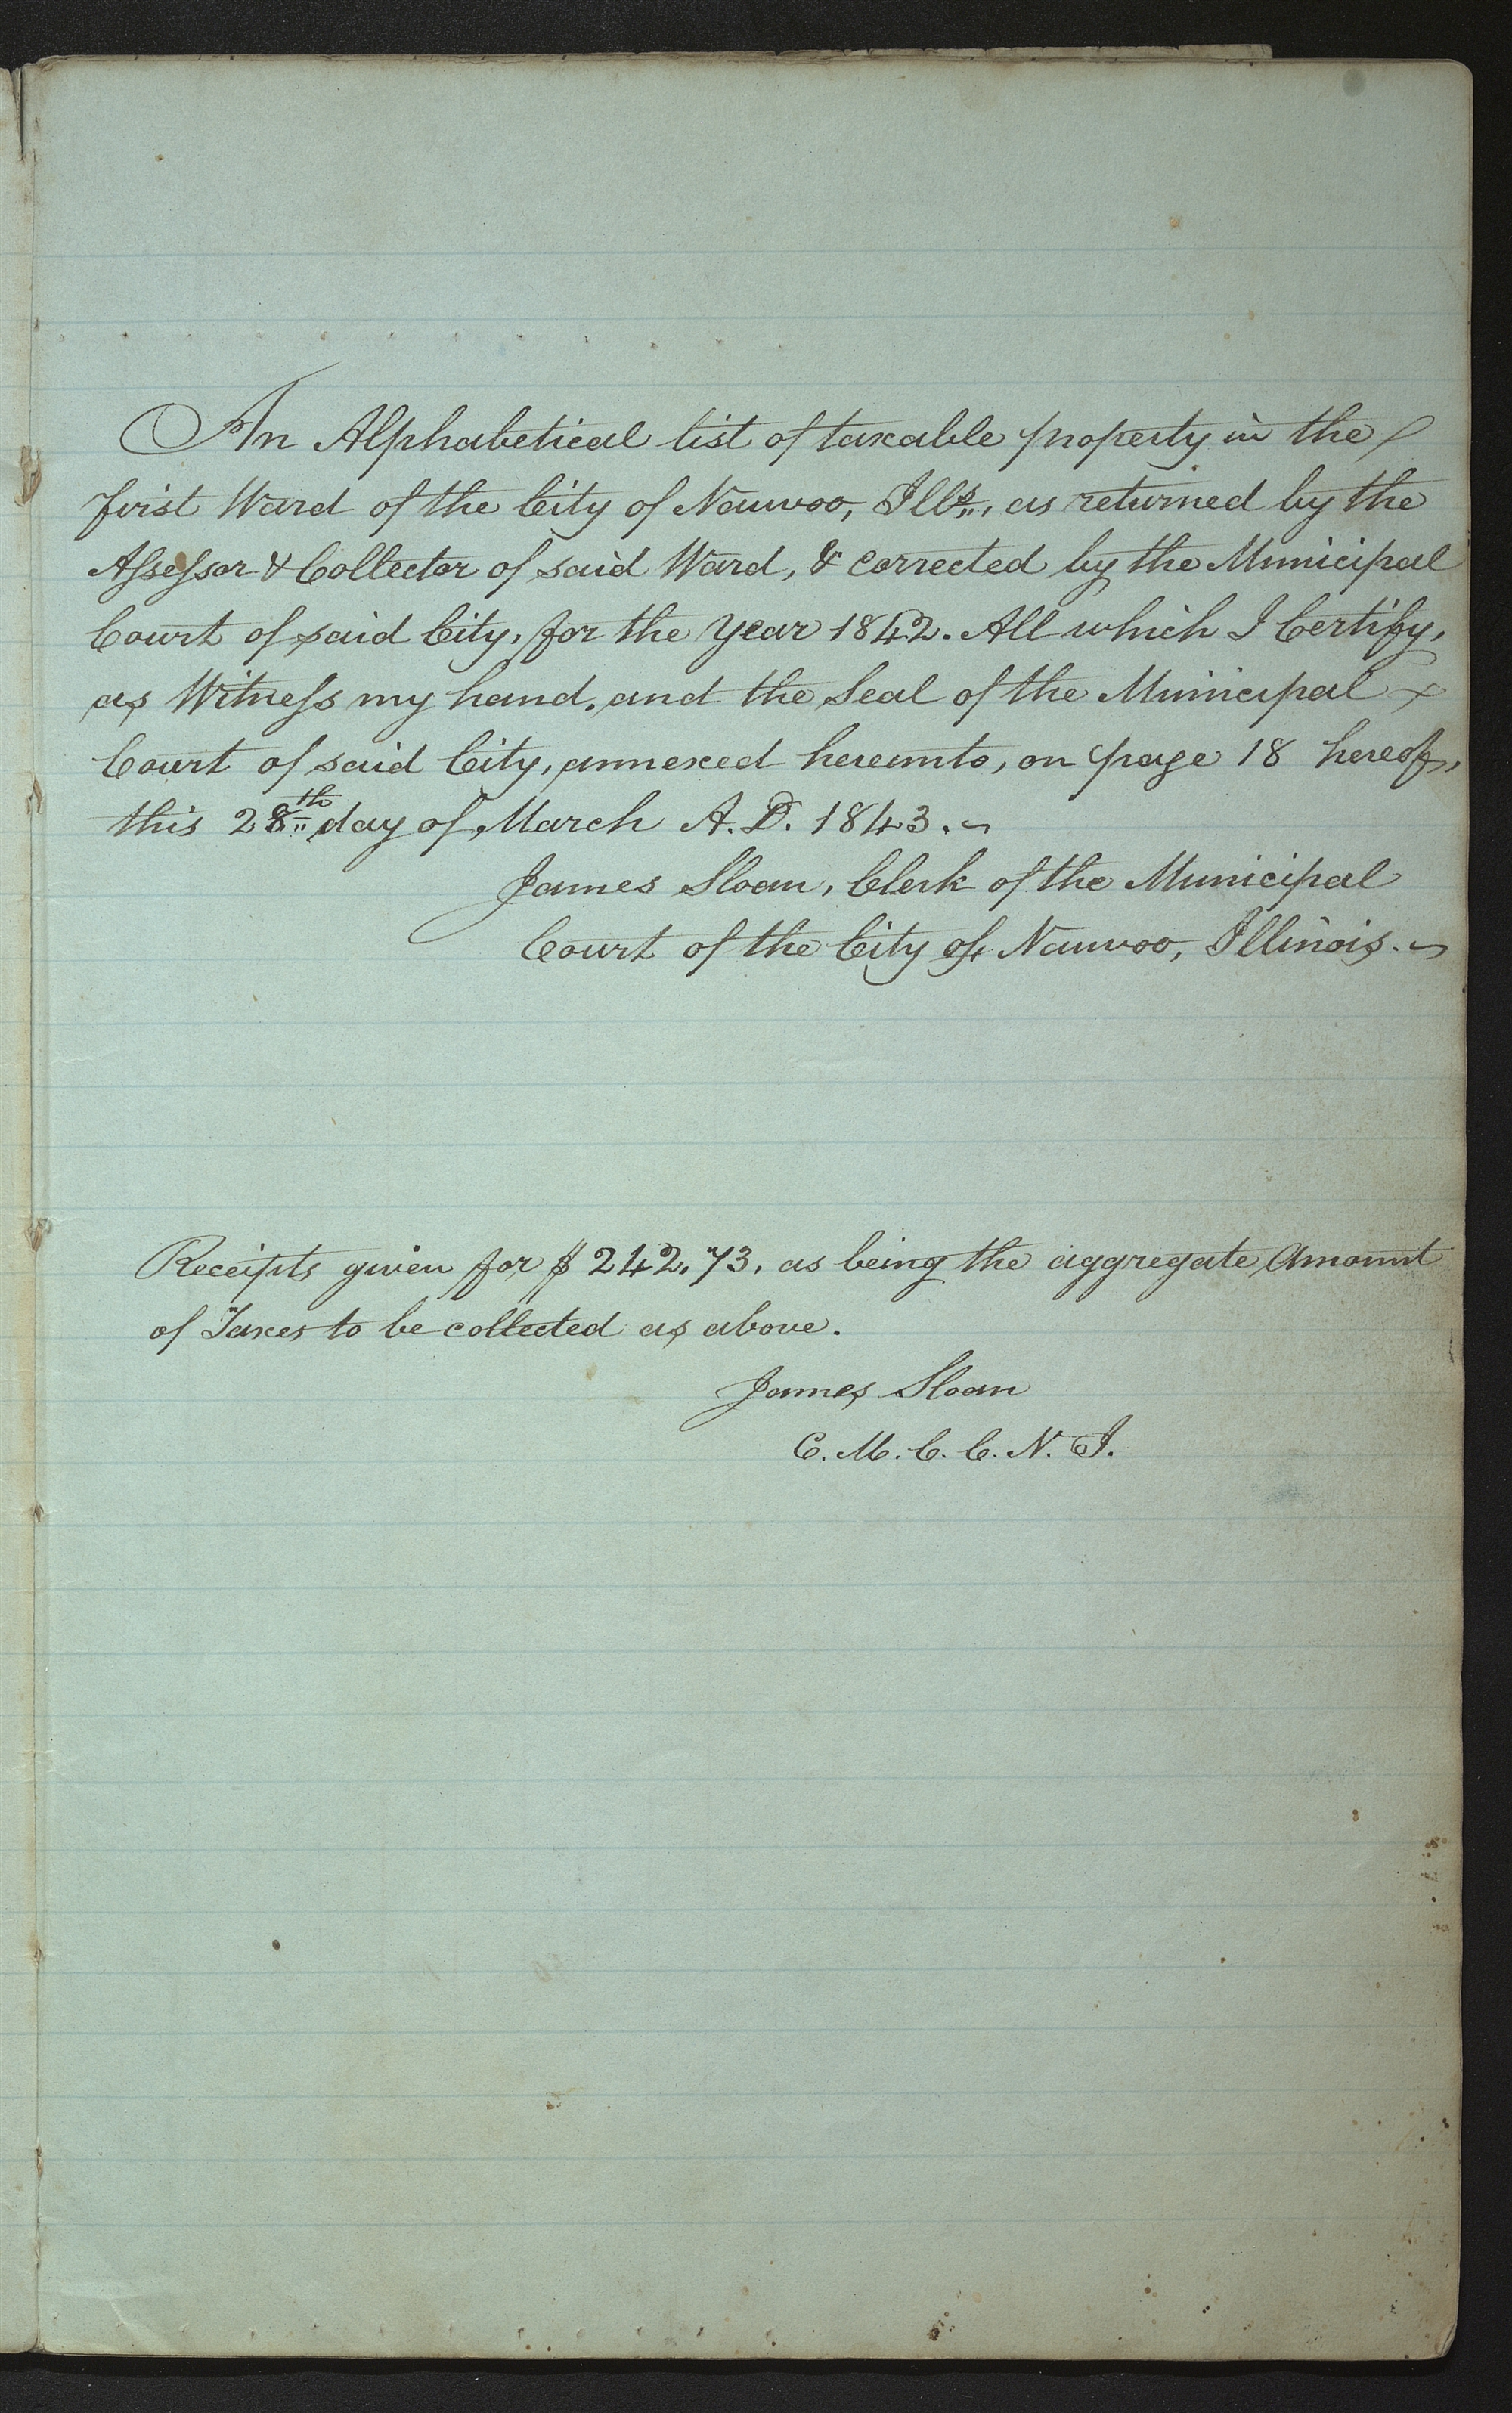 An Alphabetical list of taxable property in the
first Ward of the City of Nauvoo, Ills., as returned by the
Assessor & Collector of said Ward, & corrected by the Municipal
Court of said City, for the year 1842. All which I Certify,
as Witness my hand, and the Seal of the Municipal
Court of said City, annexed hereunto, on page 18 hereof,
this 28th day of March A.D. 1843.
James Sloan, Clerk of the Municipal
Court of the City of Nauvoo, Illinois.
Receipts given for $242.73. as being the aggregate Amount
of Taxes to be collected as above.
James Sloan
C. M. C. C. N. I.